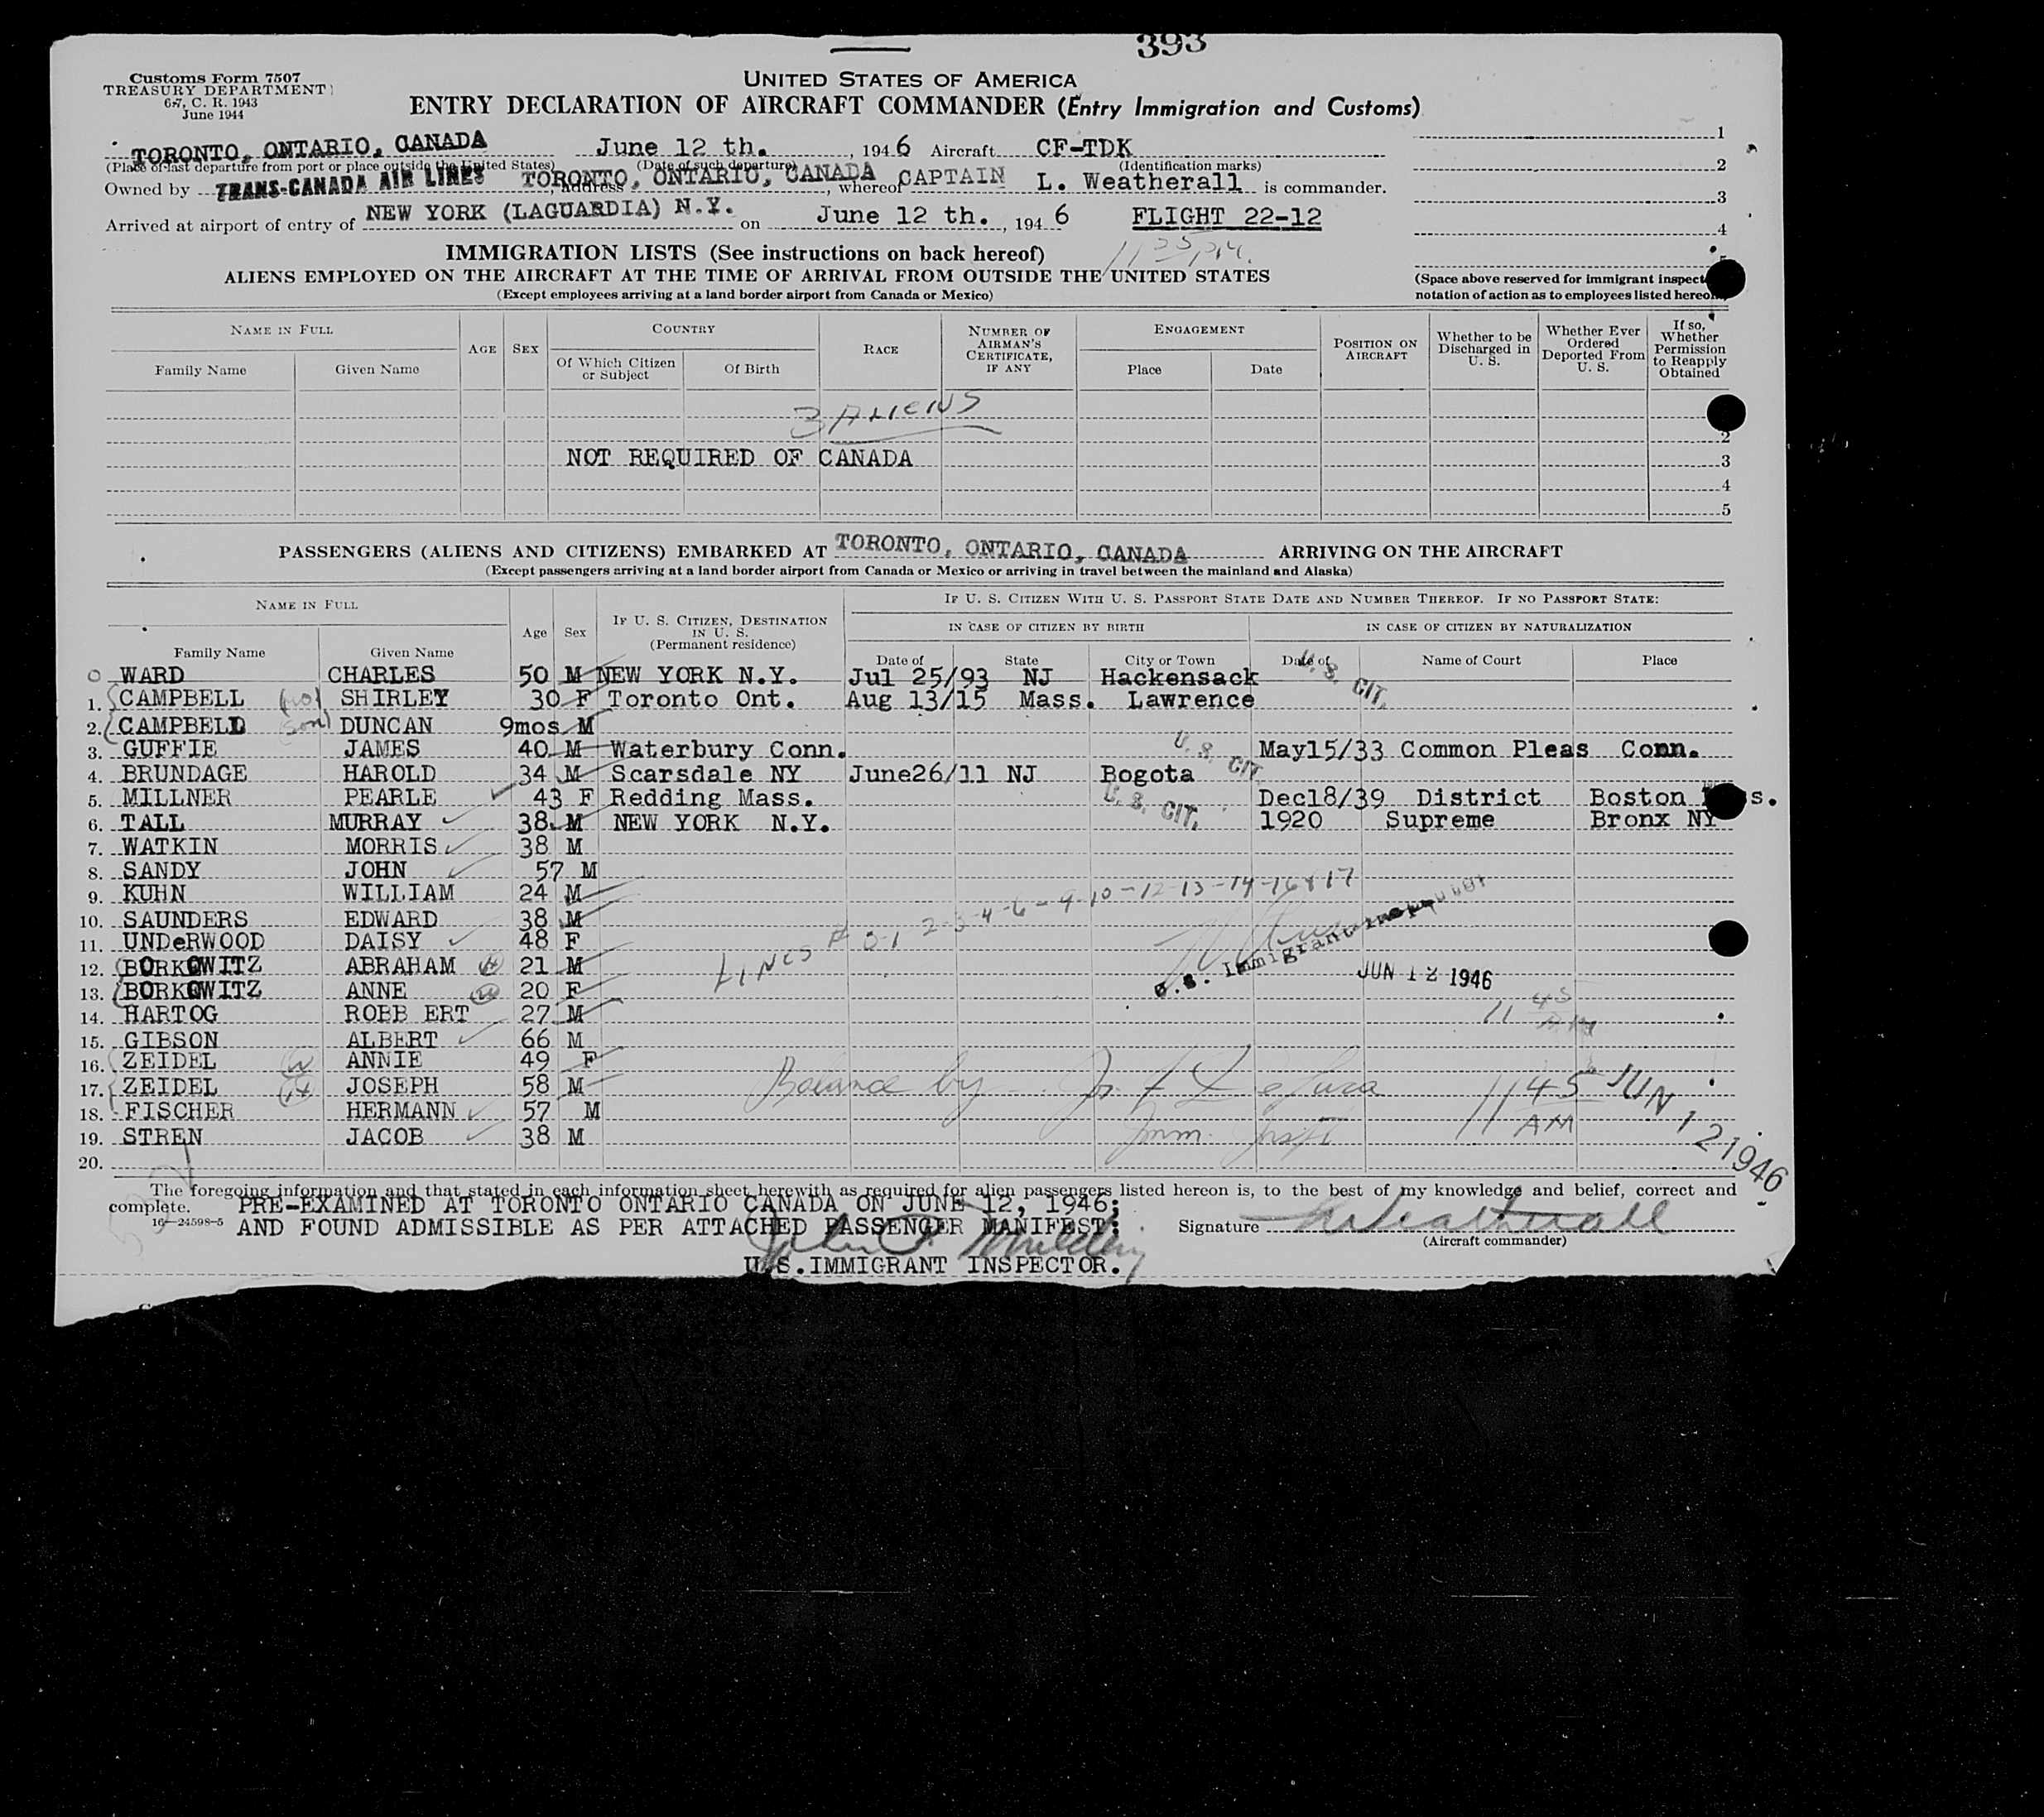 393
Customs Form 7507
TREASURY DEPARTMENT
6.7, C. R. 1943
June 1944
UNITED STATES OF AMERICA
ENTRY DECLARATION OF AIRCRAFT COMMANDER (Entry Immigration and Customs)
TORONTO, ONTARIO, CANADA June 12 th. , 1946 Aircraft CF-TDK
(Place of last departure from port or place outside the United States) (Date of such departure) (Identification marks)
Owned by TRANS-CANADA AIR LINES , address TORONTO, ONTARIO, CANADA , whereof CAPTAIN L. Weatherall is commander.
Arrived at airport of entry of NEW YORK (LAGUARDIA) N.Y. on June 12 th. , 1946 FLIGHT 22-12
1
2
3
4
5
IMMIGRATION LISTS (See instructions on back hereof)
ALIENS EMPLOYED ON THE AIRCRAFT AT THE TIME OF ARRIVAL FROM OUTSIDE THE UNITED STATES
(Except employees arriving at a land border airport from Canada or Mexico)
(Space above reserved for immigrant inspect
notation of action as to employees listed hereon.)
NAME IN FULL
Family Name Given Name
AGE SEX
COUNTRY
Of Which Citizen or Subject Of Birth
RACE
NUMBER OF AIRMAN'S CERTIFICATE, IF ANY
ENGAGEMENT
Place Date
POSITION ON AIRCRAFT
Whether to be Discharged in U. S.
Whether Ever Ordered Deported From U. S.
If so, Whether Permission to Reapply Obtained
3 ALIENS
2
NOT REQUIRED OF CANADA 3
4
5
PASSENGERS (ALIENS AND CITIZENS) EMBARKED AT TORONTO, ONTARIO, CANADA ARRIVING ON THE AIRCRAFT
(Except passengers arriving at a land border airport from Canada or Mexico or arriving in travel between the mainland and Alaska)
NAME IN FULL
Family Name Given Name
Age Sex
IF U. S. CITIZEN, DESTINATION IN U. S. (Permanent residence)
IF U. S. CITIZEN WITH U. S. PASSPORT STATE DATE AND NUMBER THEREOF. IF NO PASSPORT STATE:
IN CASE OF CITIZEN BY BIRTH IN CASE OF CITIZEN BY NATURALIZATION
Date of State City or Town Date of Name of Court Place
0 WARD CHARLES 50 M NEW YORK N.Y. Jul 25/93 NJ Hackensack U. S. CIT.
1. CAMPBELL SHIRLEY 30 F Toronto Ont. Aug 13/15 Mass. Lawrence
2. CAMPBELL (son) DUNCAN 9mos M
3. GUFFIE JAMES 40 M Waterbury Conn. U. S. CIT May15/33 Common Pleas Conn.
4. BRUNDAGE HAROLD 34 M Scarsdale NY June26/11 NJ Bogota
5. MILLNER PEARLE 43 F Redding Mass. U. S. CIT. Dec18/39 District Boston
6. TALL MURRAY 38 M NEW YORK N.Y. 1920 Supreme Bronx NY
7. WATKIN MORRIS 38 M
8. SANDY JOHN 57 M
9. KUHN WILLIAM 24 M
10. SAUNDERS EDWARD 38 M
11. UNDeRWOOD DAISY 48 F
LINES # 0-1 2-3-4-6-9-10-12-13-14-16&17
12. BORKOWITZ ABRAHAM (H) 21 M U.S. Immigrant Inspector
13. BORKOWITZ ANNE (W) 20 F JUN 12 1946
14. HARTOG ROBB ERT 27 M 11 45 AM
15. GIBSON ALBERT 66 M
16. ZEIDEL (W) ANNIE 49 F
17. ZEIDEL (H) JOSEPH 58 M 11 45 AM JUN 12 1946
18. FISCHER HERMANN 57 M
19. STREN JACOB 38 M
20.
The foregoing information and that stated in each information sheet herewith as required for alien passengers listed hereon is, to the best of my knowledge and belief, correct and
complete. PRE-EXAMINED AT TORONTO ONTARIO CANADA ON JUNE 12, 1946;
16—24598-5 AND FOUND ADMISSIBLE AS PER ATTACHED PASSENGER MANIFEST; Signature Weatherall
(Aircraft commander)
U.S.IMMIGRANT INSPECTOR.